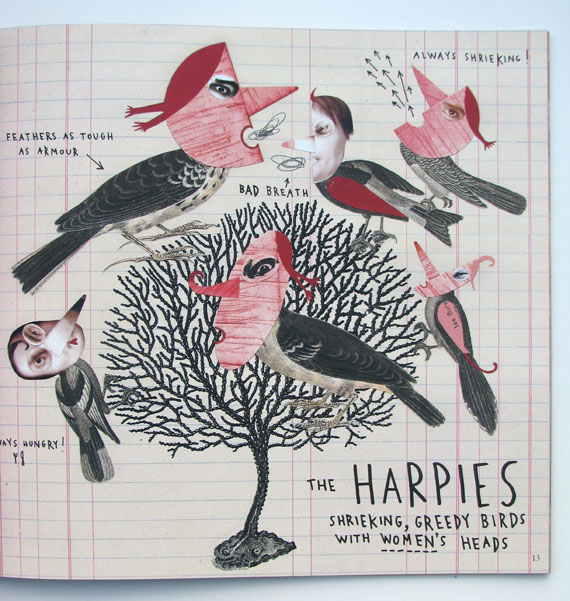 ALWAYS SHRIEKING!
FEATHERS AS TOUGH
AS ARMOUR
BAD BREATH
HUNGRY!
THE HARPIES
SHRIEKING, GREEDY BIRDS
WITH WOMEN'S HEADS
13